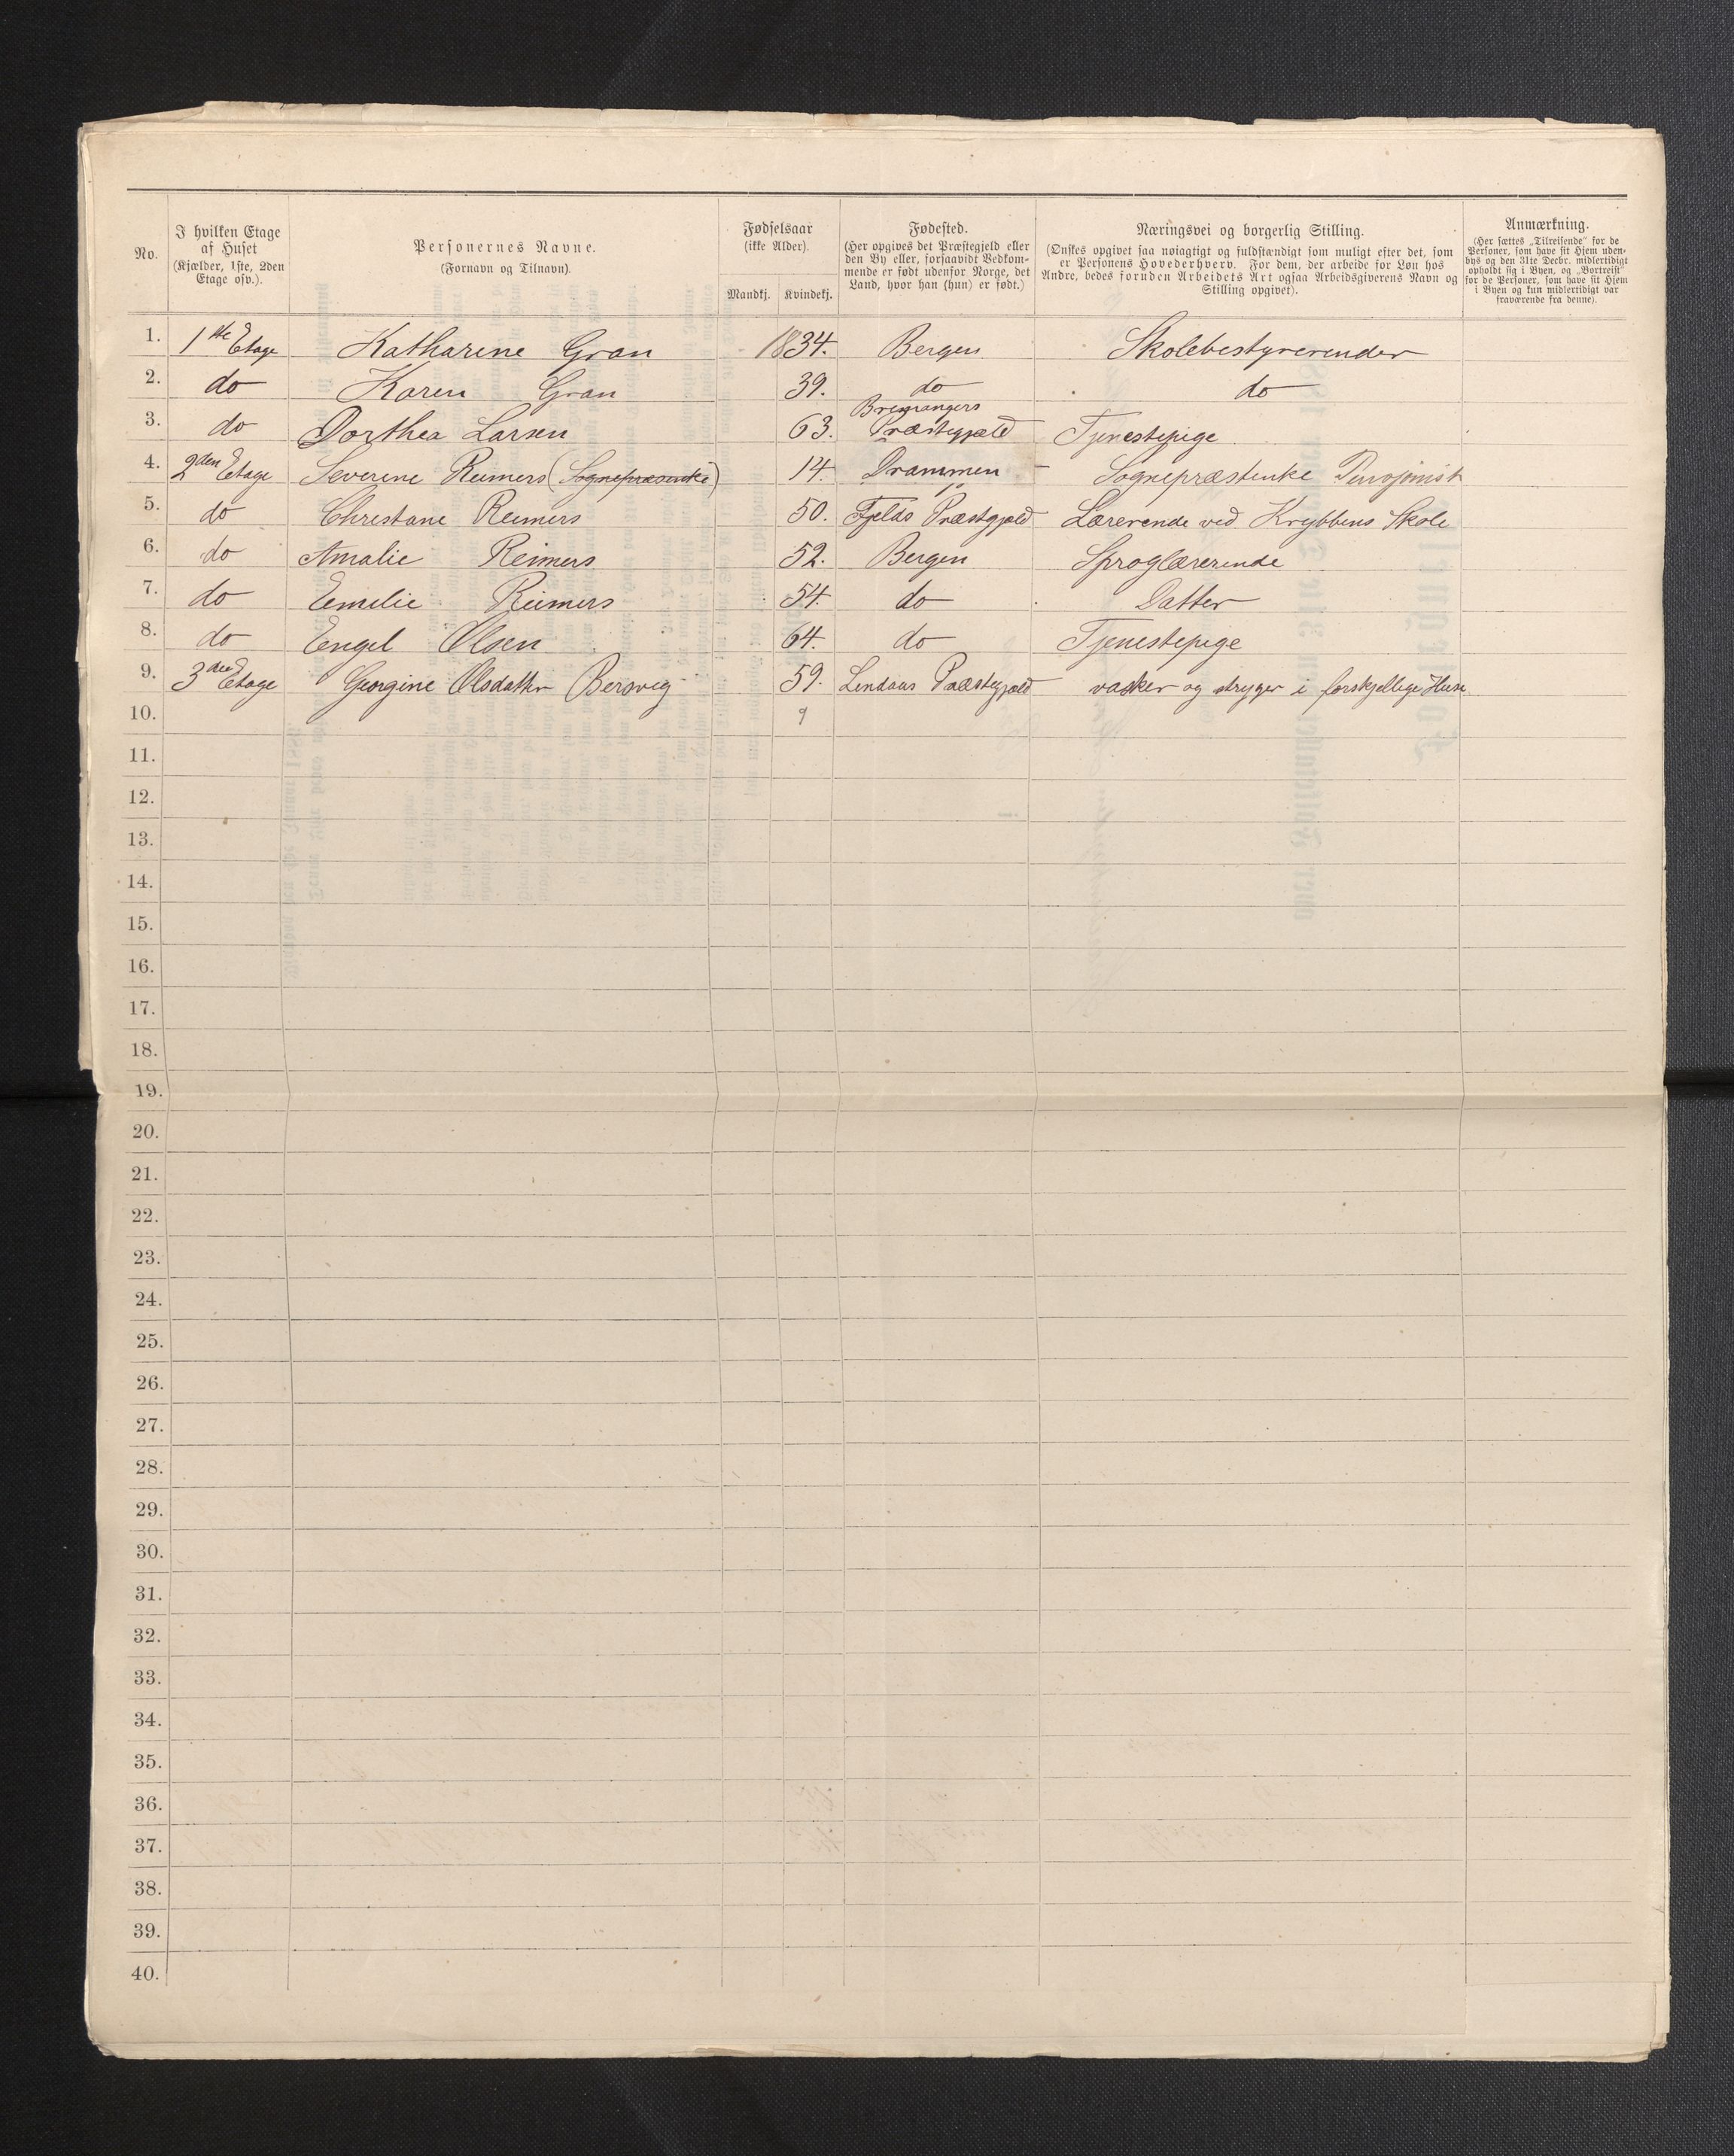 No.
I hvilken Etage
af Huset
(Kjælder, 1ste, 2den
Etage osv.).
Personernes Navne.
(Fornavn og Tilnavn).
Fødselsaar
(ikke Alder).
Mandkj. Kvindekj.
Fødested.
(Her opgives det Præstegjeld eller
den By eller, forsaavidt Vedkom-
mende er født udenfor Norge, det
Land, hvor han (hun) er født.)
Næringsvei og borgerlig Stilling.
(Ønskes opgivet saa nøiagtigt og fuldstændigt som muligt efter det, som
er Personens Hovederhverv. For dem, der arbeide for Løn hos
Andre, bedes foruden Arbeidets Art ogsaa Arbeidsgiverens Navn og
Stilling opgivet).
Anmærkning.
(Her sættes „Tilreisende" for de
Personer, som have sit Hjem uden-
bys og den 31te Decbr. midlertidigt
opholdt sig i Byen, og „Bortreist"
for de Personer, som have sit Hjem
i Byen og kun midlertidigt var
fraværende fra denne).
1. 1ste Etage Katharine Gran 1834. Bergen Skolebestyrerinder
2. do Karen Gran 39. do do
3. do Dorthea Larsen 63. Bremangers Præstegjæld Tjenestepige
4. 2den Etage Severine Reimers (Sognepræsenke) 14. Drammen Sognepræstenke Pensjonist
5. do Christane Reimers 50. Fjelds Præstgjæld Lærerinde ved Krybbens Skole
6. do Amalie Reimers 52. Bergen Sproglærerinde
7. do Emilie Reimers 54. do Datter
8. do Engel Olsen 64. do Tjenestepige
9. 3die Etage Georgine Olsdatter Bersvig 59. Lindaas Præstegjæld vasker og stryger i forskjellige Huse
10. 9
11.
12.
13.
14.
15.
16.
17.
18.
19.
20.
21.
22.
23.
24.
25.
26.
27.
28.
29.
30.
31.
32.
33.
34.
35.
36.
37.
38.
39.
40.